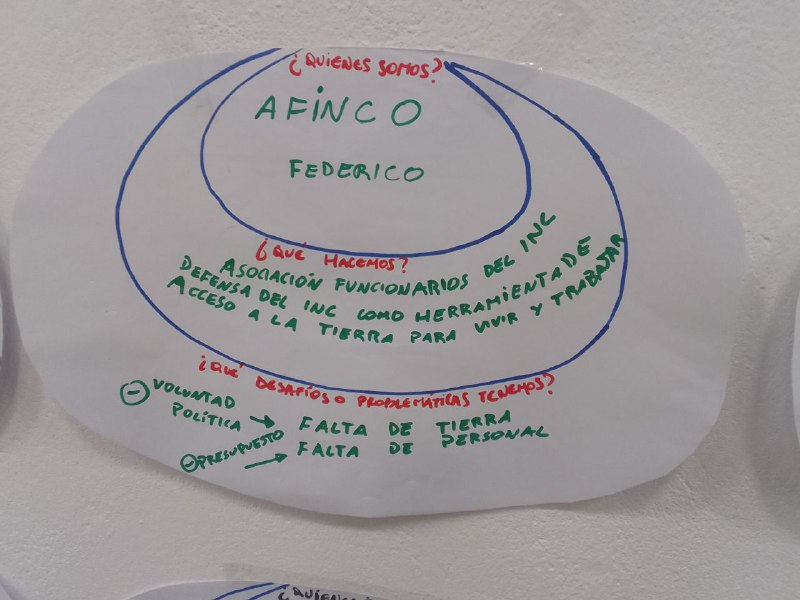 ¿QUIENES SOMOS?
AFINCO
FEDERICO
¿QUÉ HACEMOS?
ASOCIACIÓN FUNCIONARIOS DEL INC
DEFENSA DEL INC COMO HERRAMIENTA DE
ACCESO A LA TIERRA PARA VIVIR Y TRABAJAR
¿QUÉ DESAFÍOS O PROBLEMÁTICAS TENEMOS?
⊖ VOLUNTAD
POLÍTICA → FALTA DE TIERRA
⊖ PRESUPUESTO → FALTA DE PERSONAL